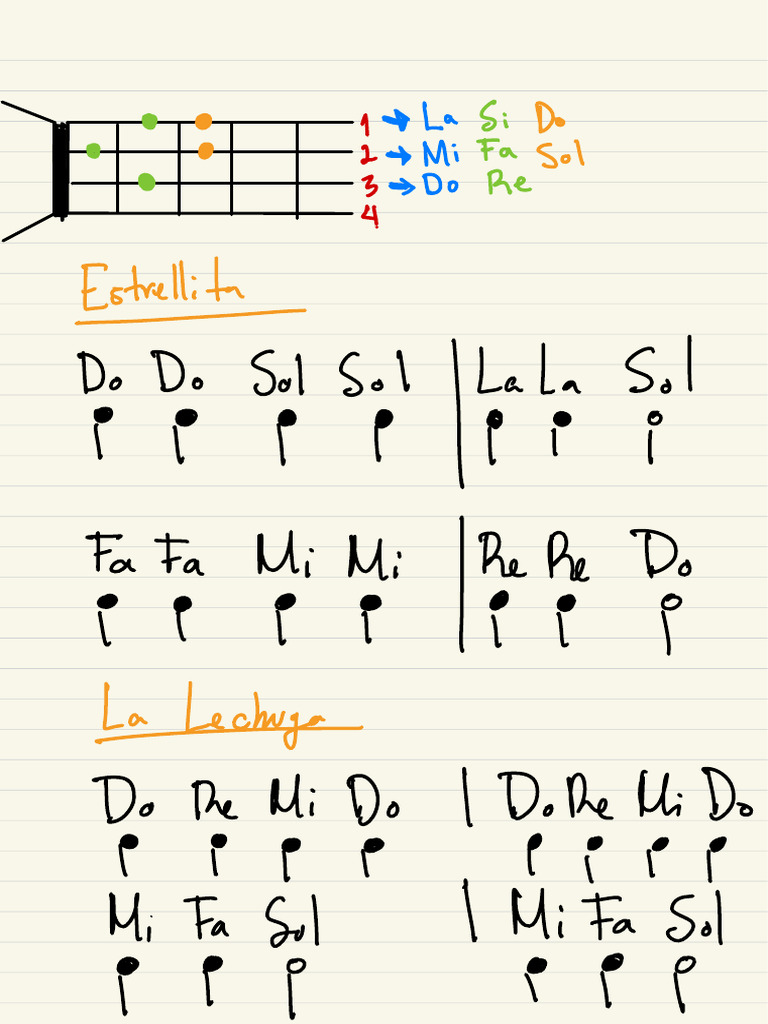 1 → La Si Do
2 → Mi Fa Sol
3 → Do Re
4
Estrellita
Do Do Sol Sol | La La Sol
Fa Fa Mi Mi | Re Re Do
La Lechuga
Do Re Mi Do | Do Re Mi Do
Mi Fa Sol | Mi Fa Sol